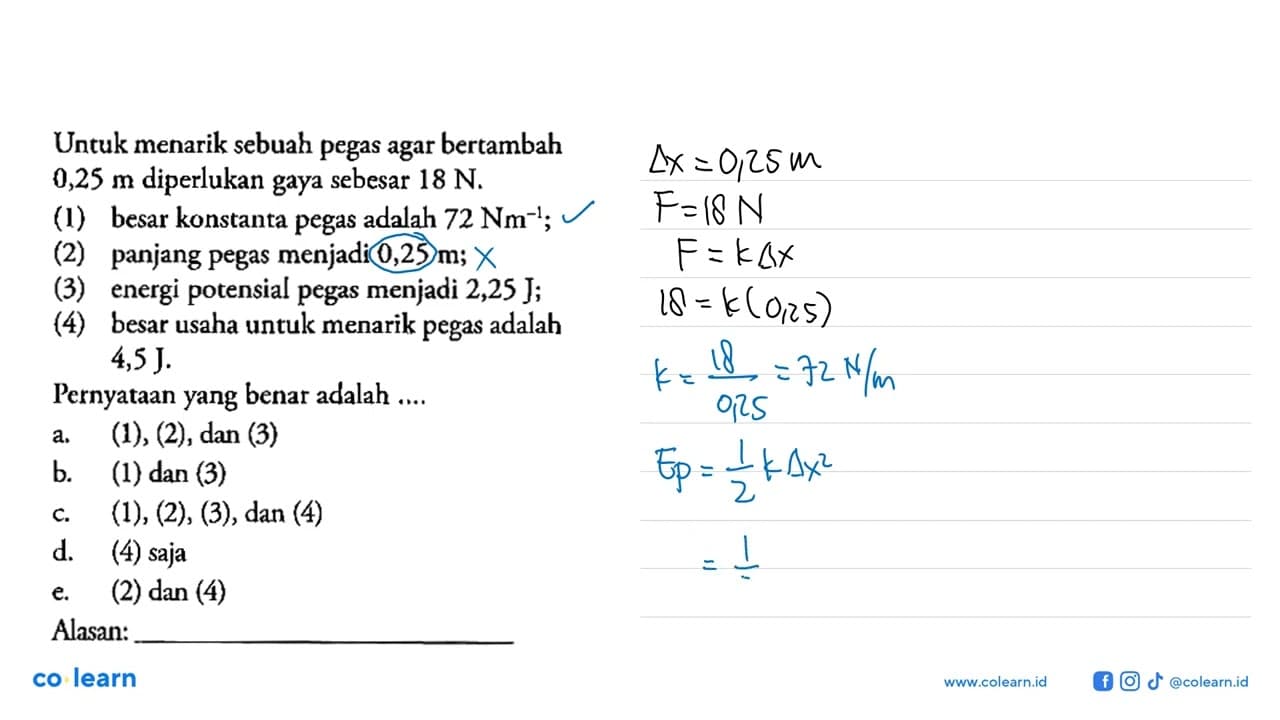 Untuk menarik sebuah pegas agar bertambah
0,25 m diperlukan gaya sebesar 18 N.
(1) besar konstanta pegas adalah 72 Nm⁻¹; ✓
(2) panjang pegas menjadi 0,25 m; X
(3) energi potensial pegas menjadi 2,25 J;
(4) besar usaha untuk menarik pegas adalah
4,5 J.
Pernyataan yang benar adalah ....
a. (1), (2), dan (3)
b. (1) dan (3)
c. (1), (2), (3), dan (4)
d. (4) saja
e. (2) dan (4)
Alasan: ____________________
Δx = 0,25 m
F = 18 N
F = k Δx
18 = k (0,25)
k = 18/0,25 = 72 N/m
Ep = 1/2 k Δx²
= 1/
co learn
www.colearn.id
@colearn.id